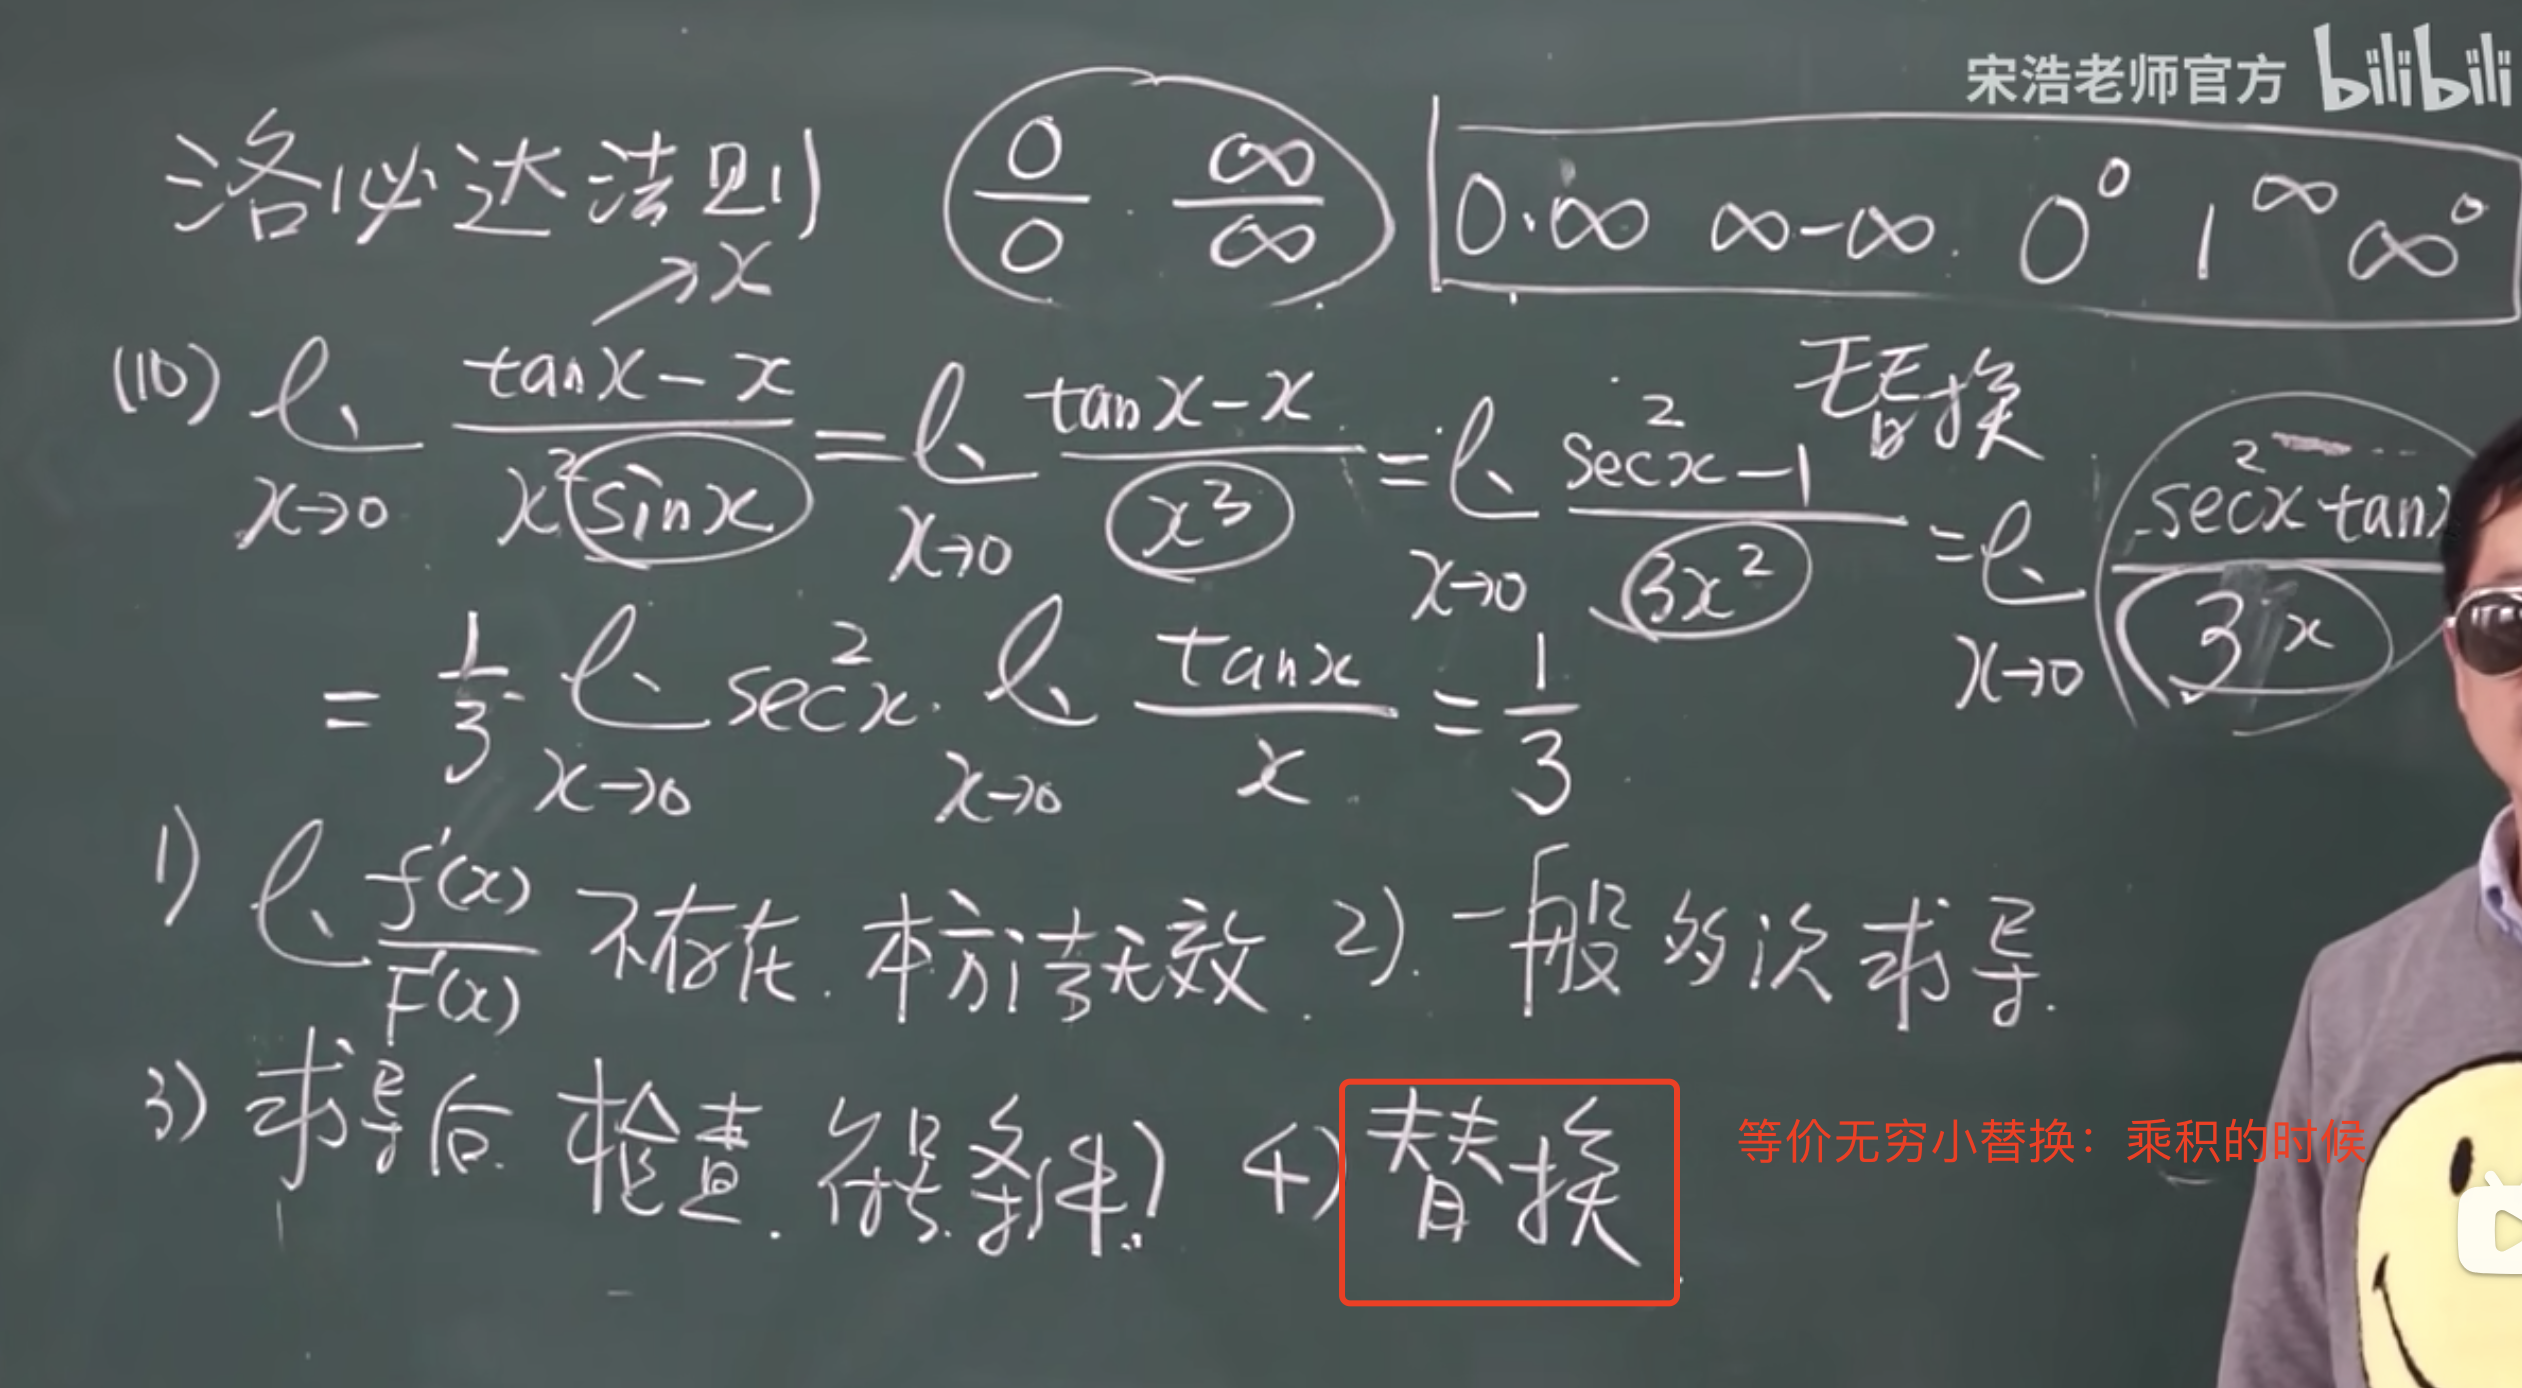 宋浩老师官方 bilibili
洛必达法则 0/0 . ∞/∞ 0·∞ ∞-∞. 0⁰ 1^∞ ∞⁰
→x
替换
(10) lim_{x→0} (tanx-x)/(x²sinx) = lim_{x→0} (tanx-x)/x³ = lim_{x→0} (sec²x-1)/(3x²) = lim_{x→0} (sec²x tanx)/(3x)
= 1/3 lim_{x→0} sec²x · lim_{x→0} tanx/x = 1/3
1) lim f'(x)/F'(x) 不存在. 本方法无效. 2). 一般多次求导.
3) 求导后 检查. 符号. 条件) 4) 替换
等价无穷小替换：乘积的时候